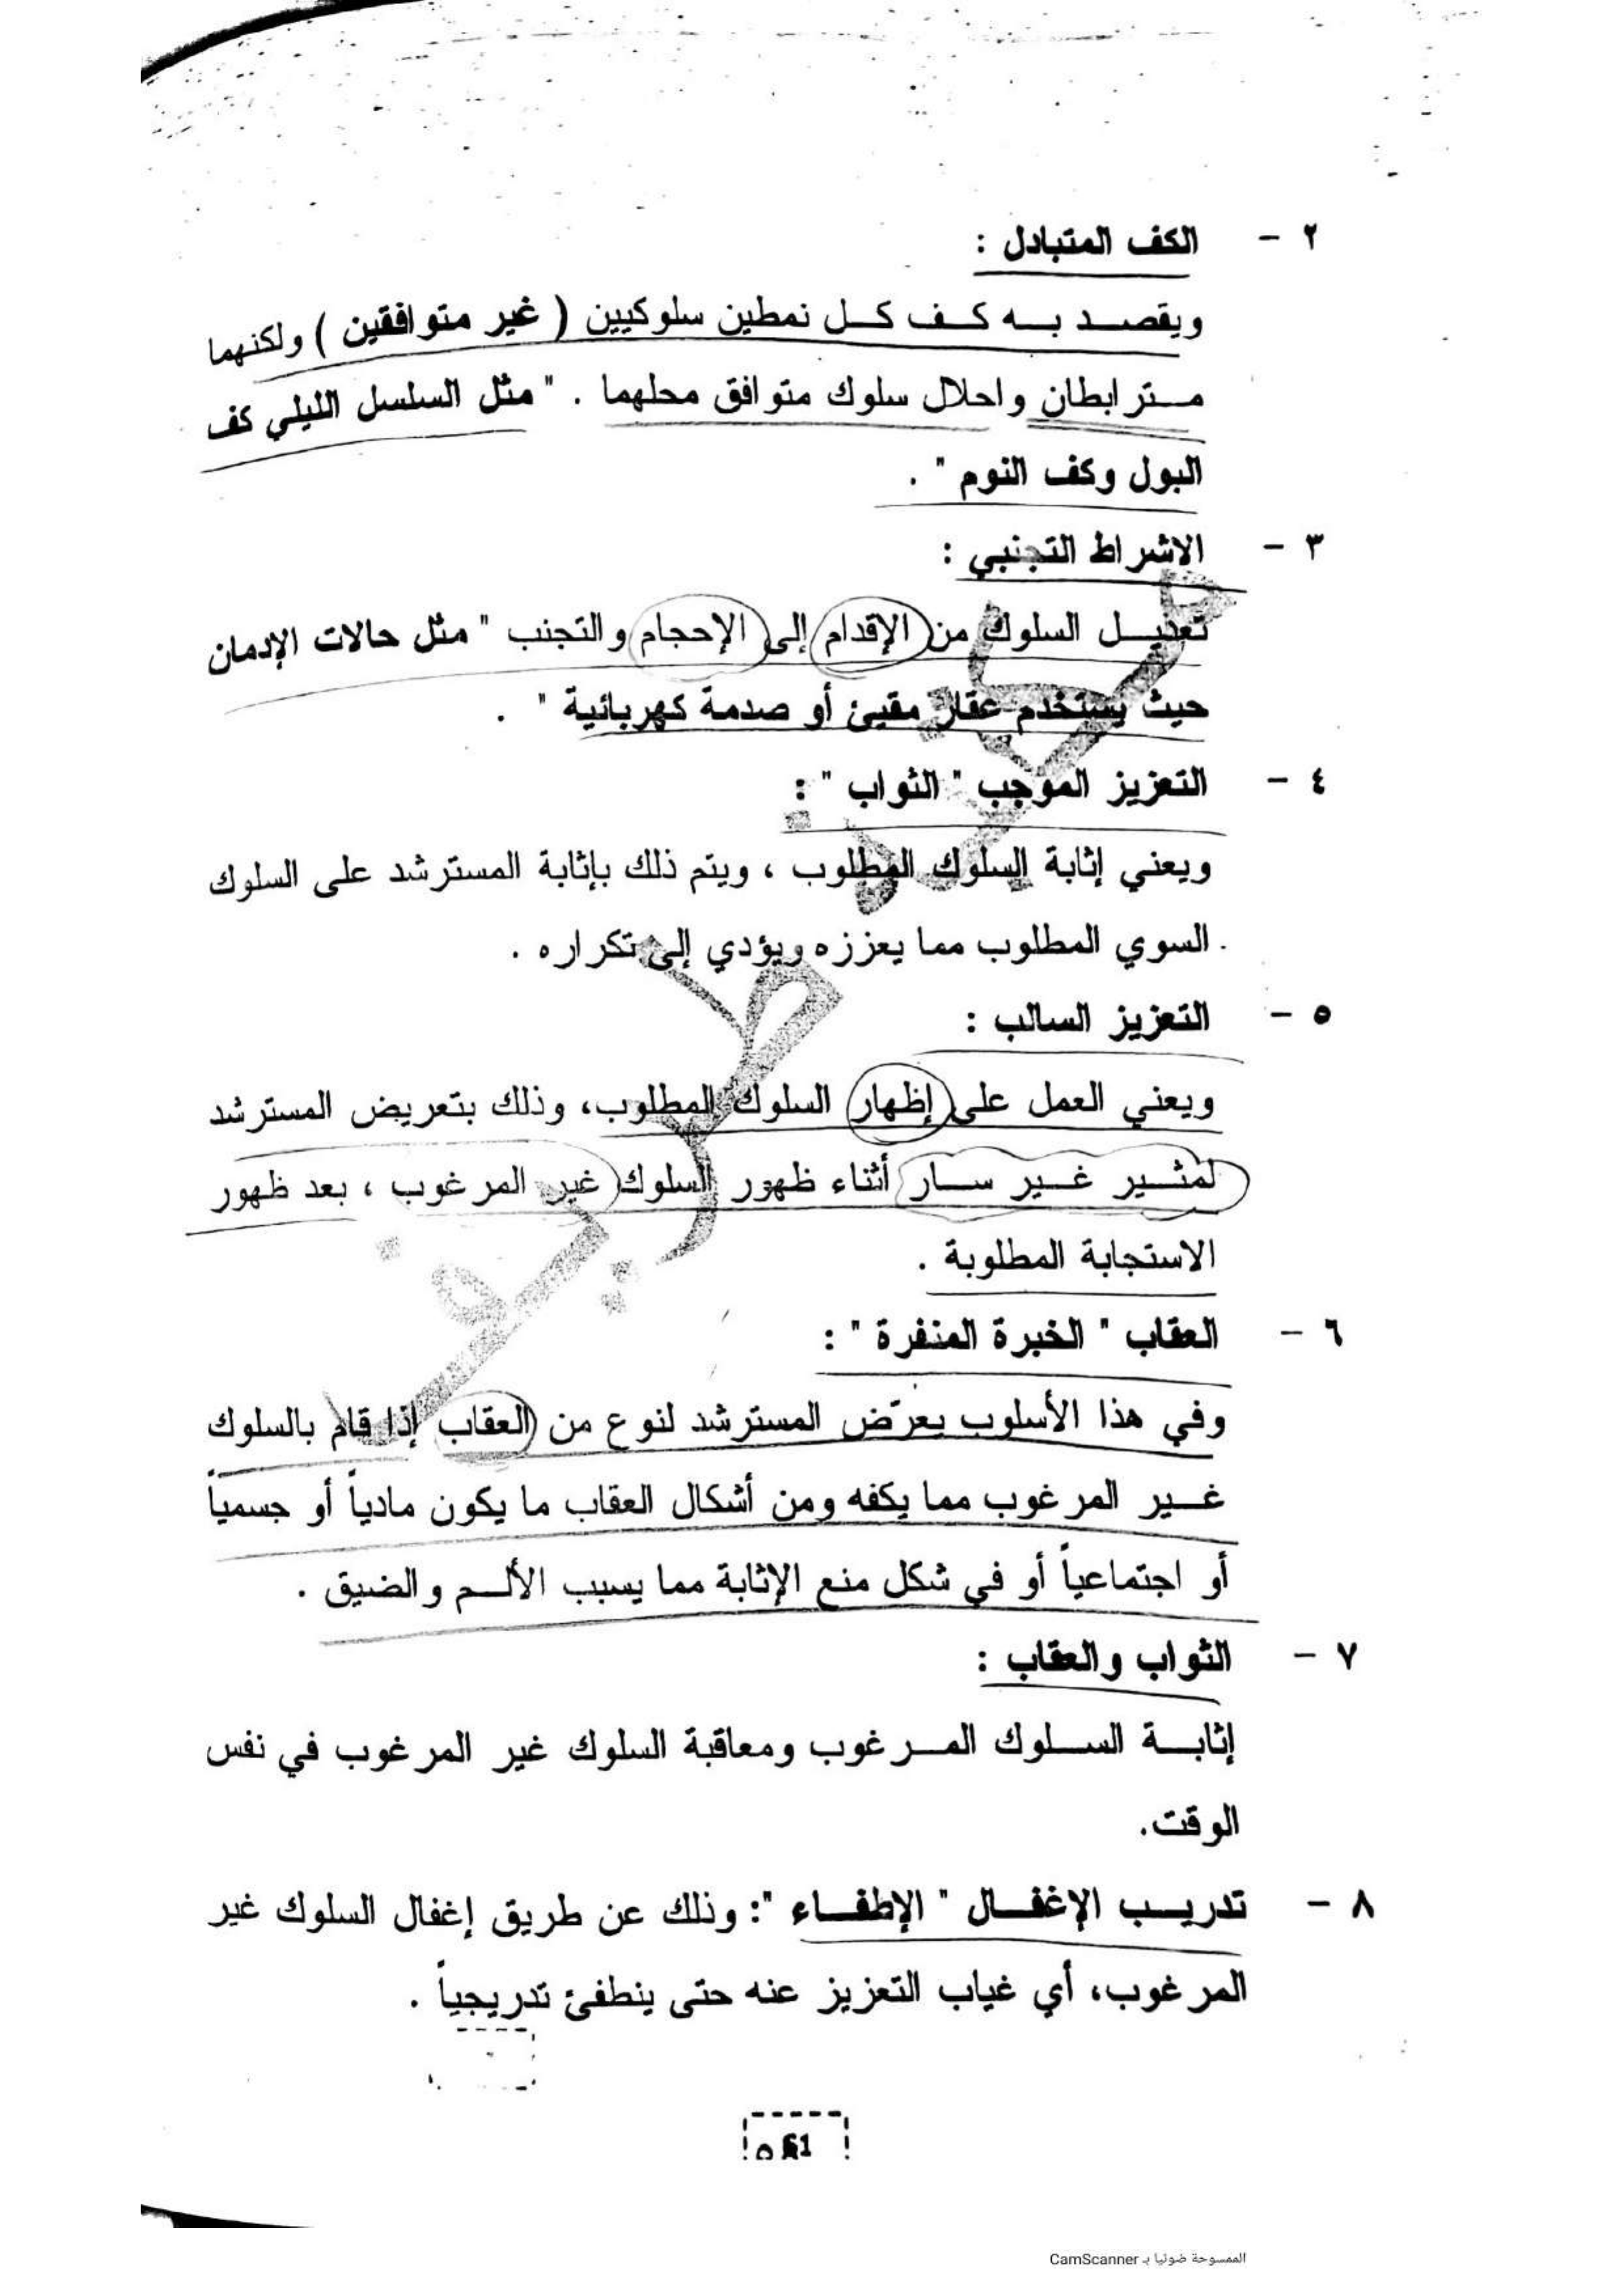 ٢ - الكف المتبادل :
ويقصد به كف كل نمطين سلوكيين ( غير متوافقين ) ولكنهما
مترابطان واحلال سلوك متوافق محلهما . " مثل السلسل الليلي كف
البول وكف النوم " .
٣ - الاشراط التجنبي :
تعديل السلوك من الإقدام إلى الإحجام والتجنب " مثل حالات الإدمان
حيث يستخدم عقار مقيئ أو صدمة كهربائية " .
٤ - التعزيز الموجب " الثواب " :
ويعني إثابة السلوك المطلوب ، ويتم ذلك بإثابة المسترشد على السلوك
السوي المطلوب مما يعززه ويؤدي إلى تكراره .
٥ - التعزيز السالب :
ويعني العمل على إظهار السلوك المطلوب، وذلك بتعريض المسترشد
لمثير غير سار أثناء ظهور السلوك غير المرغوب ، بعد ظهور
الاستجابة المطلوبة .
٦ - العقاب " الخبرة المنفرة " :
وفي هذا الأسلوب يعرّض المسترشد لنوع من العقاب إذا قام بالسلوك
غير المرغوب مما يكفه ومن أشكال العقاب ما يكون مادياً أو جسمياً
أو اجتماعياً أو في شكل منع الإثابة مما يسبب الألم والضيق .
٧ - الثواب والعقاب :
إثابة السلوك المرغوب ومعاقبة السلوك غير المرغوب في نفس
الوقت.
٨ - تدريب الإغفال " الإطفاء ": وذلك عن طريق إغفال السلوك غير
المرغوب، أي غياب التعزيز عنه حتى ينطفئ تدريجياً .
الممسوحة ضوئيا بـ CamScanner